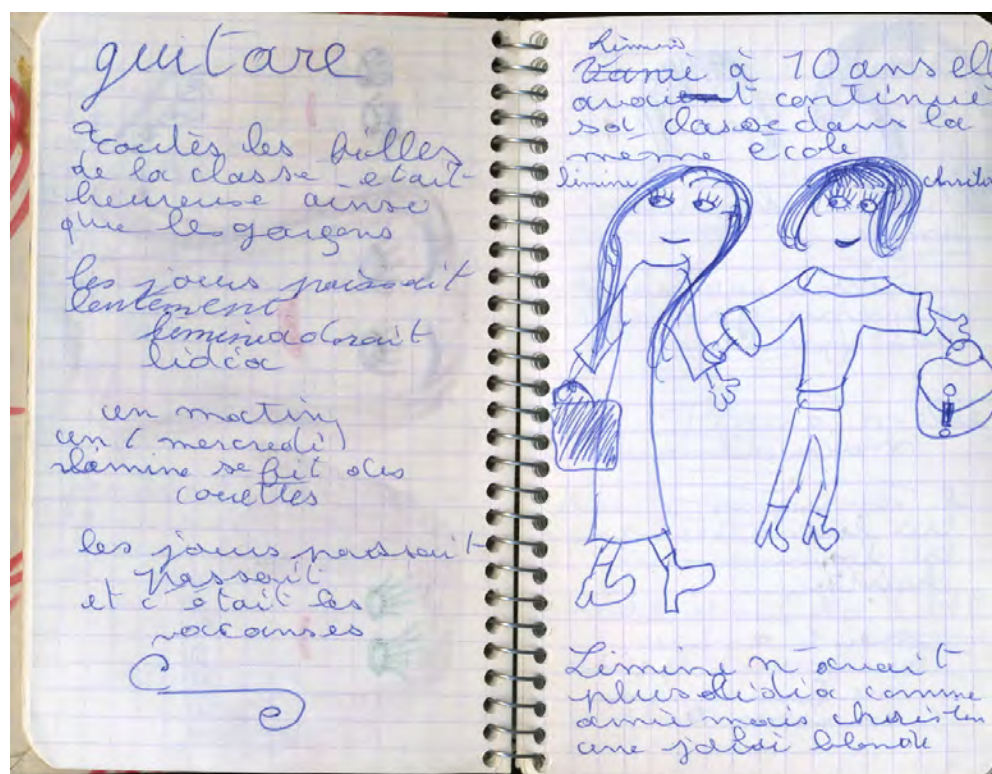 guitare
toutes les filles
de la classe etait
heureuse ainsi
que les garçons
les jours passait
lentement
liminadorait
lidia
un matin
un (mercredi)
limine se fit des
couettes
les jours passait
passait
et c'était les
vacanses
Limine
à 10 ans ell
avait continué
sa classe dans la
meme ecole
limine
christin
Limine n'avait
plus lidia comme
amie mais christin
une jolie blonde